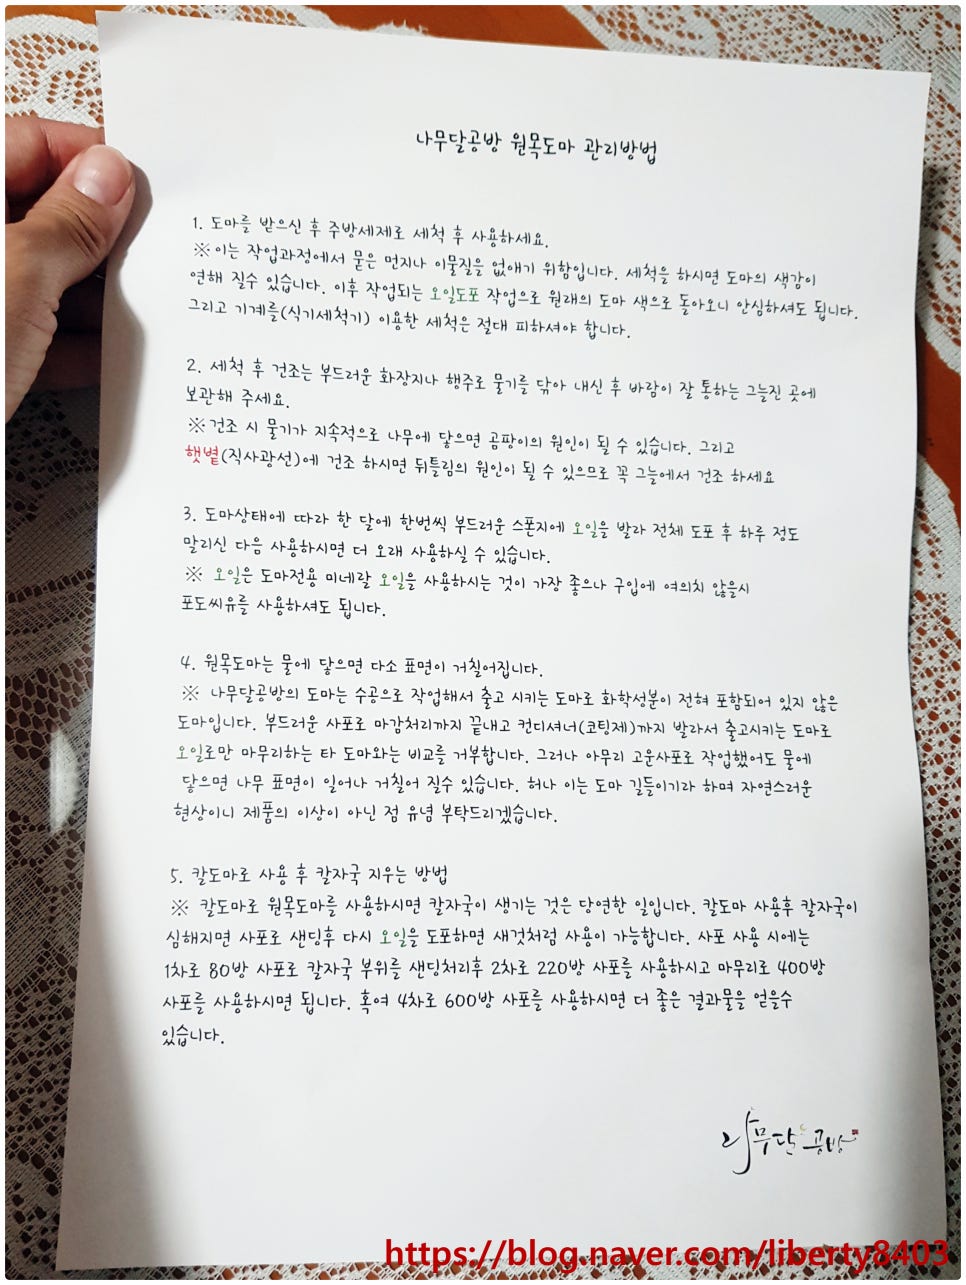 나무달공방 원목도마 관리방법
1. 도마를 받으신 후 주방세제로 세척 후 사용하세요.
※ 이는 작업과정에서 뭍은 먼지나 이물질을 없애기 위함입니다. 세척을 하시면 도마의 색감이
연해 질수 있습니다. 이후 작업되는 오일도포 작업으로 원래의 도마 색으로 돌아오니 안심하셔도 됩니다.
그리고 기계를(식기세척기) 이용한 세척은 절대 피하셔야 합니다.
2. 세척 후 건조는 부드러운 화장지나 행주로 물기를 닦아 내신 후 바람이 잘 통하는 그늘진 곳에
보관해 주세요.
※ 건조 시 물기가 지속적으로 나무에 닿으면 곰팡이의 원인이 될 수 있습니다. 그리고
햇볕(직사광선)에 건조 하시면 뒤틀림의 원인이 될 수 있으므로 꼭 그늘에서 건조 하세요
3. 도마상태에 따라 한 달에 한번씩 부드러운 스폰지에 오일을 발라 전체 도포 후 하루 정도
말리신 다음 사용하시면 더 오래 사용하실 수 있습니다.
※ 오일은 도마전용 미네랄 오일을 사용하시는 것이 가장 좋으나 구입에 여의치 않을시
포도씨유를 사용하셔도 됩니다.
4. 원목도마는 물에 닿으면 다소 표면이 거칠어집니다.
※ 나무달공방의 도마는 수공으로 작업해서 출고 시키는 도마로 화학성분이 전혀 포함되어 있지 않은
도마입니다. 부드러운 사포로 마감처리까지 끝내고 컨디셔너(코팅제)까지 발라서 출고시키는 도마로
오일로만 마무리하는 타 도마와는 비교를 거부합니다. 그러나 아무리 고운사포로 작업했어도 물에
닿으면 나무 표면이 일어나 거칠어 질수 있습니다. 허나 이는 도마 길들이기라 하며 자연스러운
현상이니 제품의 이상이 아닌 점 유념 부탁드리겠습니다.
5. 칼도마로 사용 후 칼자국 지우는 방법
※ 칼도마로 원목도마를 사용하시면 칼자국이 생기는 것은 당연한 일입니다. 칼도마 사용후 칼자국이
심해지면 사포로 샌딩후 다시 오일을 도포하면 새것처럼 사용이 가능합니다. 사포 사용 시에는
1차로 80방 사포로 칼자국 부위를 샌딩처리후 2차로 220방 사포를 사용하시고 마무리로 400방
사포를 사용하시면 됩니다. 혹여 4차로 600방 사포를 사용하시면 더 좋은 결과물을 얻을수
있습니다.
나무달공방
https://blog.naver.com/liberty8403